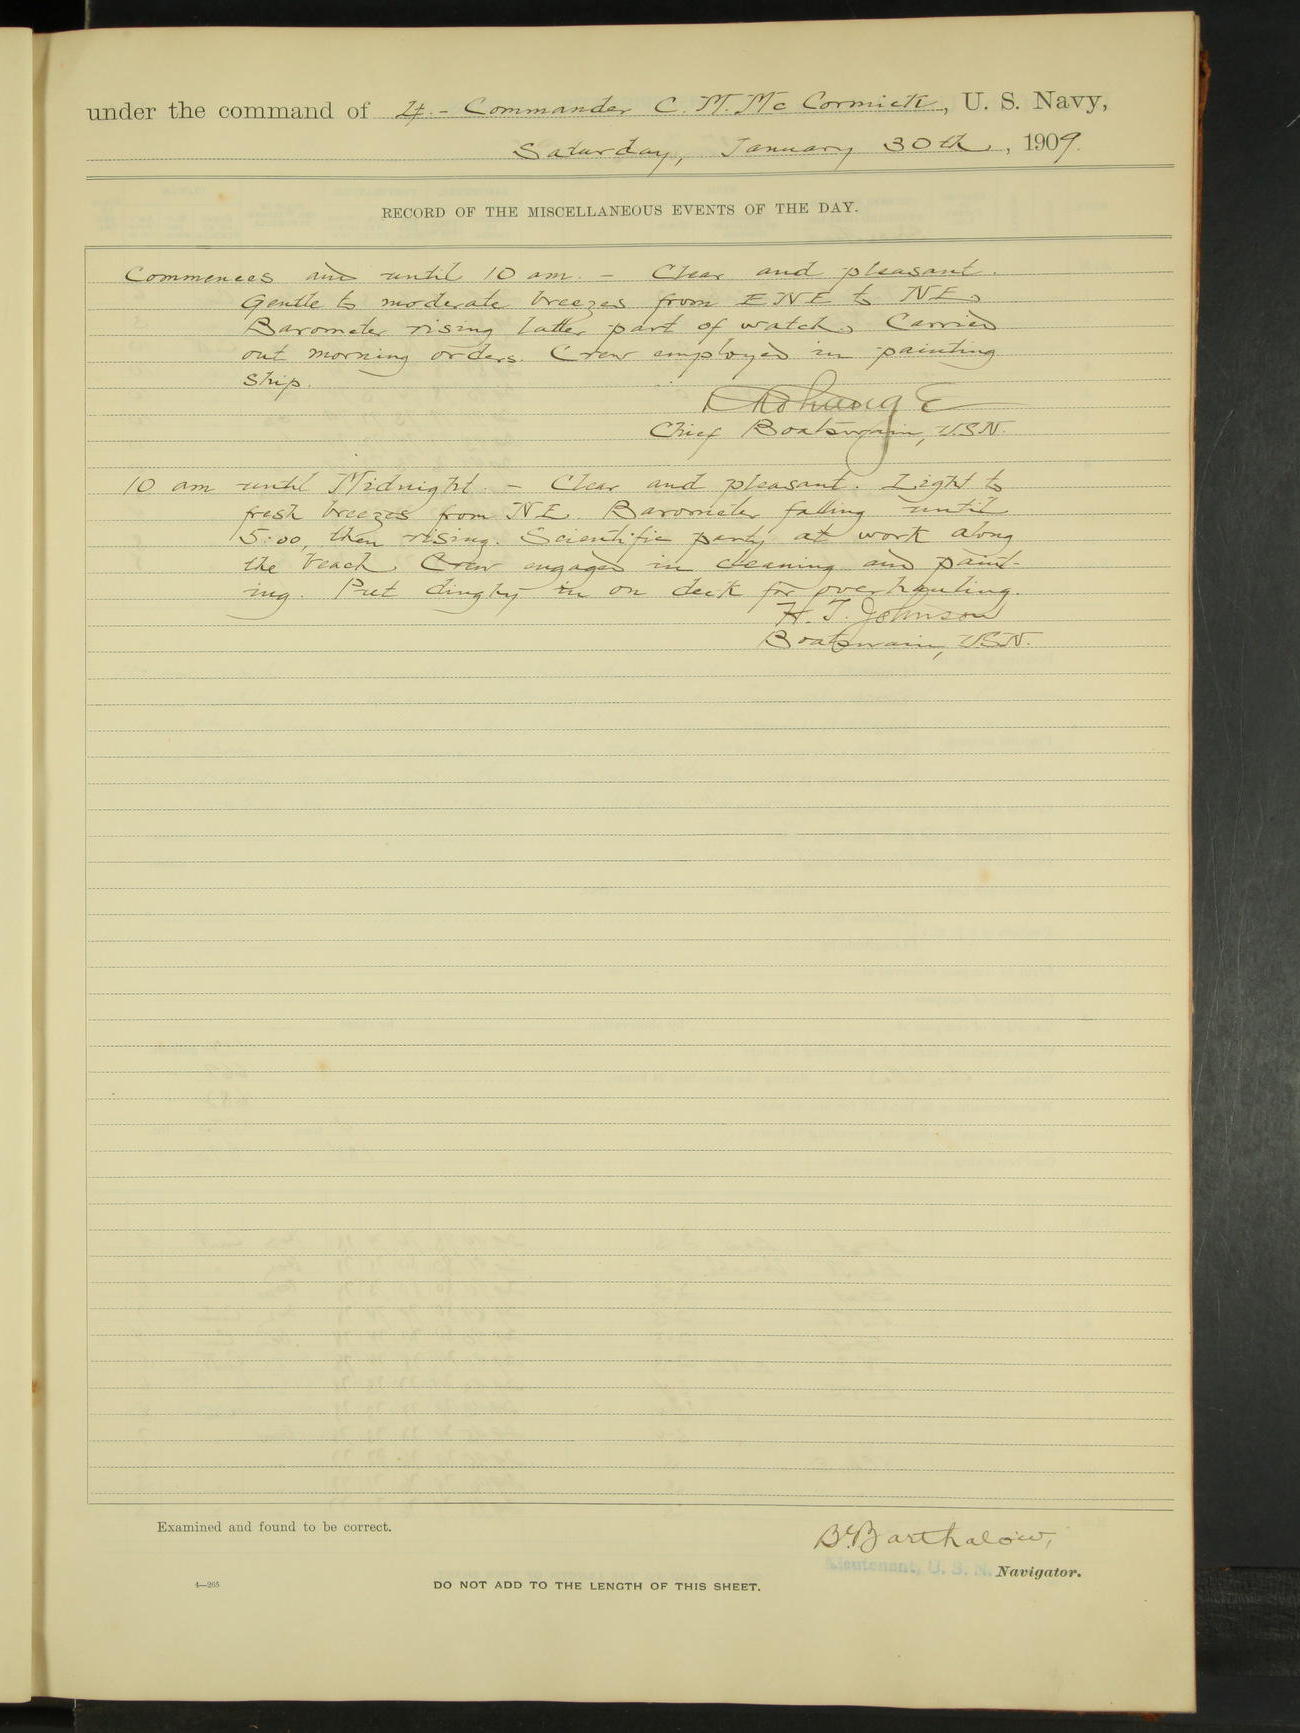 under the command of Lt.- Commander C. M. McCormick, U. S. Navy,
Saturday, January 30th, 1909.
RECORD OF THE MISCELLANEOUS EVENTS OF THE DAY.
Commences and until 10 am. - Clear and pleasant.
Gentle to moderate breezes from ENE to NE.
Barometer rising latter part of watch. Carried
out morning orders. Crew employed in painting
ship.
Chief Boatswain, U.S.N.
10 am until Midnight. - Clear and pleasant. Light to
fresh breezes from NE. Barometer falling until
5:00, then rising. Scientific party at work along
the beach. Crew engaged in cleaning and paint-
ing. Put dinghy in on deck for overhauling.
H. T. Johnson
Boatswain, U.S.N.
Examined and found to be correct.
B. Barthalow,
Lieutenant, U. S. N. Navigator.
4—265
DO NOT ADD TO THE LENGTH OF THIS SHEET.